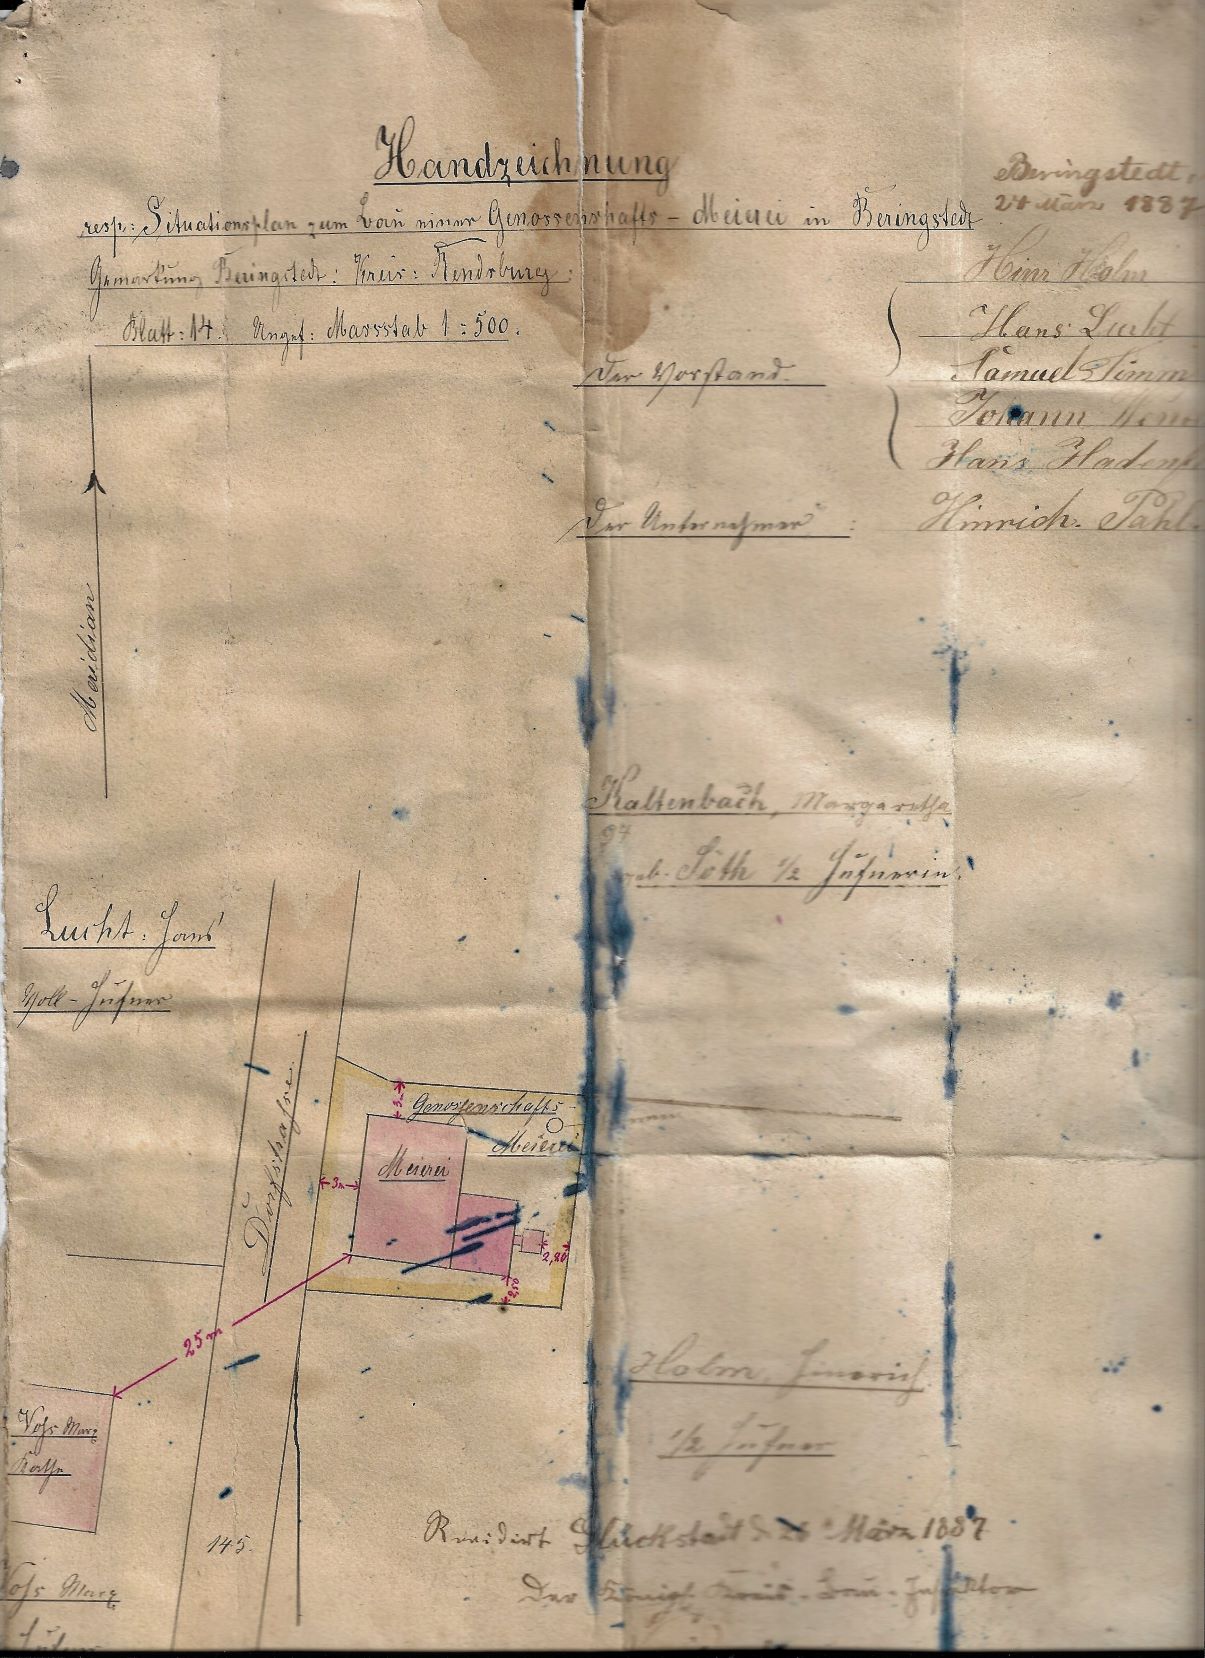 Handzeichnung
resp: Situationsplan zum Bau einer Genossenschafts – Meierei in Beringstedt
Gemarkung Beringstedt: Kreis: Rendsburg:
Blatt: 14. Ungef: Massstab 1 = 500.
Beringstedt,
März 1887
Hinr Holm
Hans Lucht
Der Vorstand.
Samuel Timm
Johann
Hans Hadenf
Der Unternehmer :
Hinrich. Pahl
Meridian
Kaltenbach, Margaretha
geb. Söth 1/2 Hufnerin.
Lucht: Hans
Voll-Hufner
Dorfstrasse
3m
Genossenschafts-
Meierei
Meierei
3m
2,80
2,50
25m
Vohs Marg
Kathe
Holm, Hinrich
1/2 Hufner
145.
Revidirt Glückstadt d. März 1887
Der Königl. Kreis-Bau-Inspektor
Vohs Marg
Hufner